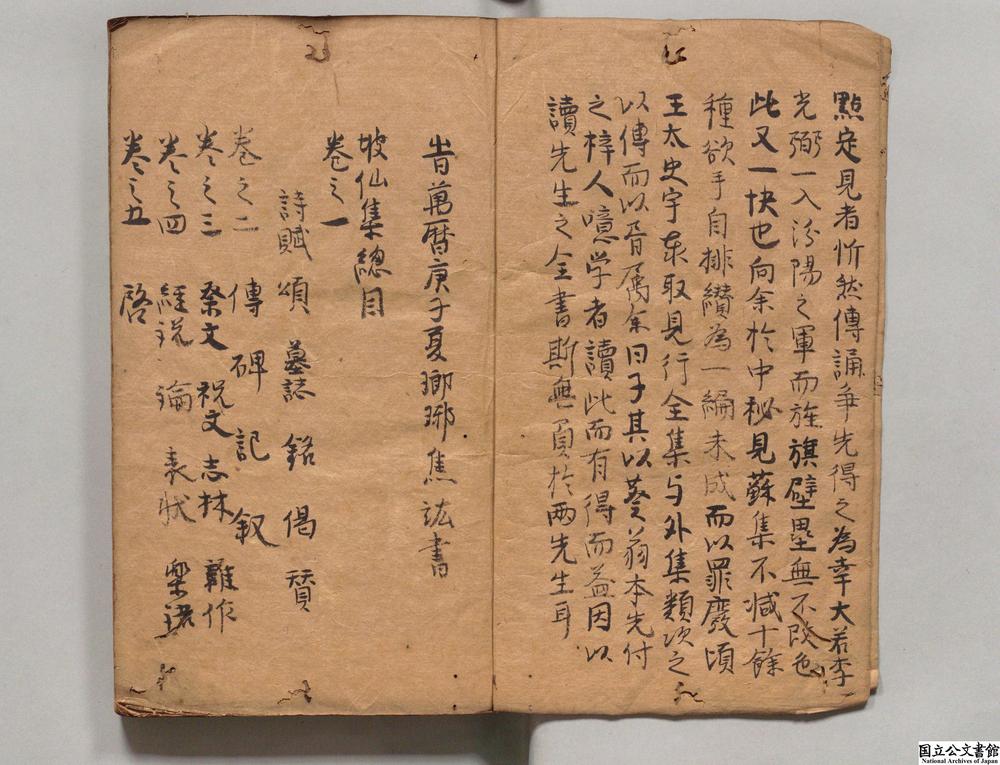 點定見者忻然傳誦爭先得之為幸大若李
光弼一入汾陽之軍而旌旗壁壘無不改色
此又一快也向余於中秘見蘇集不減十餘
種欲手自排纘為一編未成而以罪廢頃
王太史宇泰取見行全集与外集類次之
以傳而以胥属余曰子其以蓌翁本先付
之梓人噫学者讀此而有得而益因以
讀先生之全書斯無負於两先生耳
旹萬曆庚子夏瑯琊焦竑書
坡仙集總目
卷之一
詩賦 頌 墓誌 銘 偈 賛
卷之二 傳 碑 記 叙
卷之三 祭文 祝文 志林 雜作
卷之四 經説 論 表狀
卷之五 啓
国立公文書館
National Archives of Japan